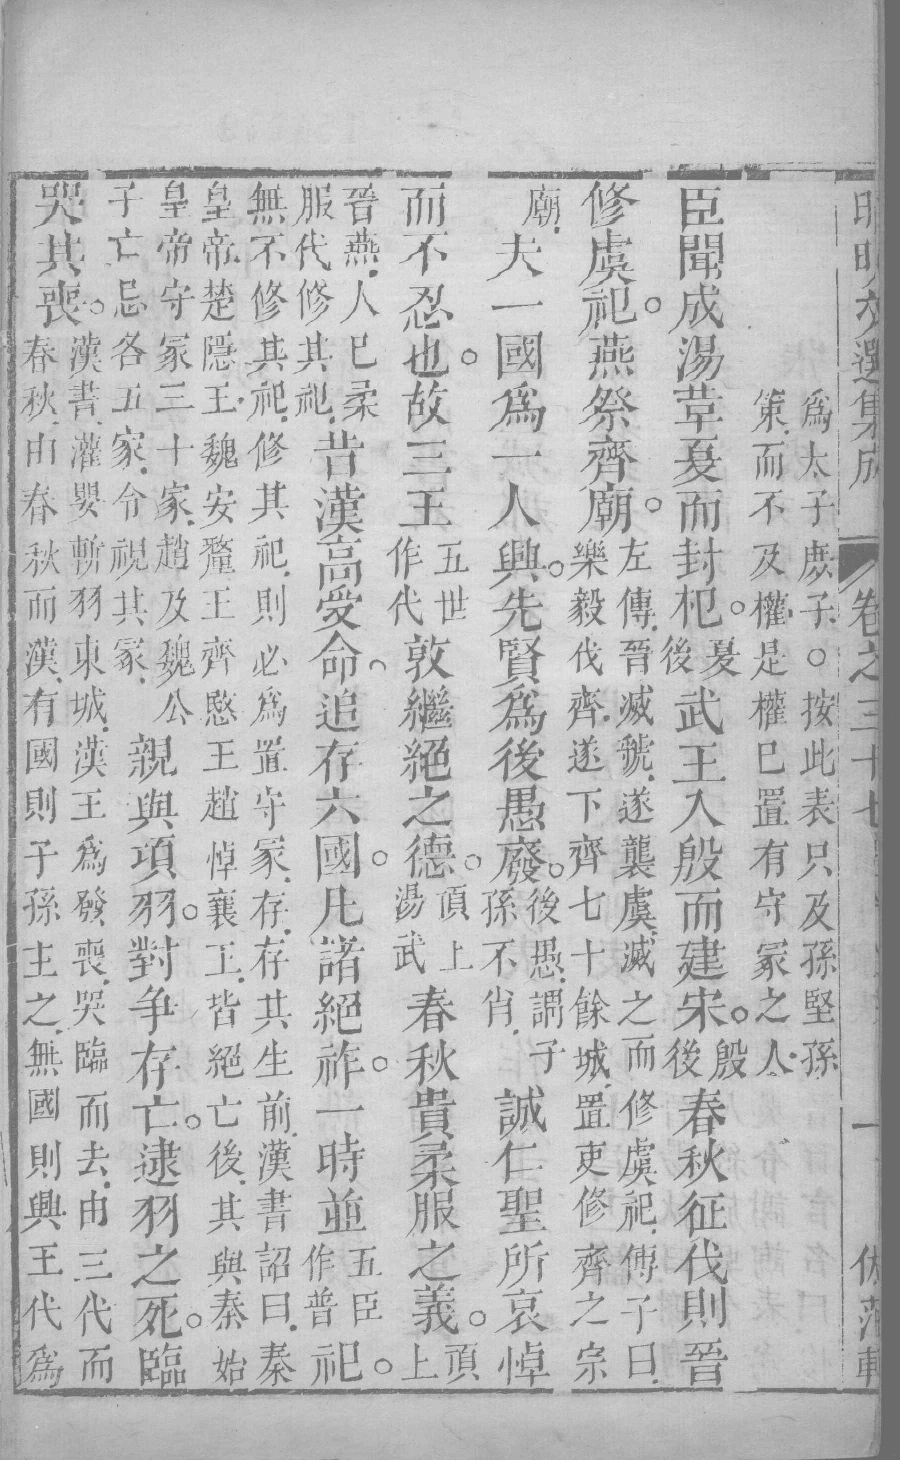 昭明文選集成 卷之三十七 一
為太子庶子○按此表只及孫堅孫
策而不及權是權已置有守冢之人
臣聞成湯革夏而封杞。夏後武王入殷而建宋。殷後春秋征伐則晉
修虞祀。燕祭齊廟。左傳晉滅虢遂襲虞滅之而修虞祀傅子曰樂毅伐齊遂下齊七十餘城置吏修齊之宗
廟夫一國爲一人興。先賢爲後愚廢。後愚謂子孫不肖誠仁聖所哀悼
而不忍也。故三王五世作代敦繼絕之德。頂上湯武春秋貴柔服之義。頂上
晉燕人已柔服代修其祀昔漢高受命。追存六國。凡諸絕祚。一時並五臣作普祀。
無不修其祀修其祀則必為置守冢存存其生前漢書詔曰秦
皇帝楚隱王魏安釐王齊愍王趙悼襄王皆絕亡後其與秦始
皇帝守冢三十家趙及魏公子亡忌各五家令視其冢親與項羽。對爭存亡。逮羽之死。臨
哭其喪。漢書灌嬰斬羽東城漢王爲發喪哭臨而去由三代而春秋由春秋而漢有國則子孫主之無國則興王代爲